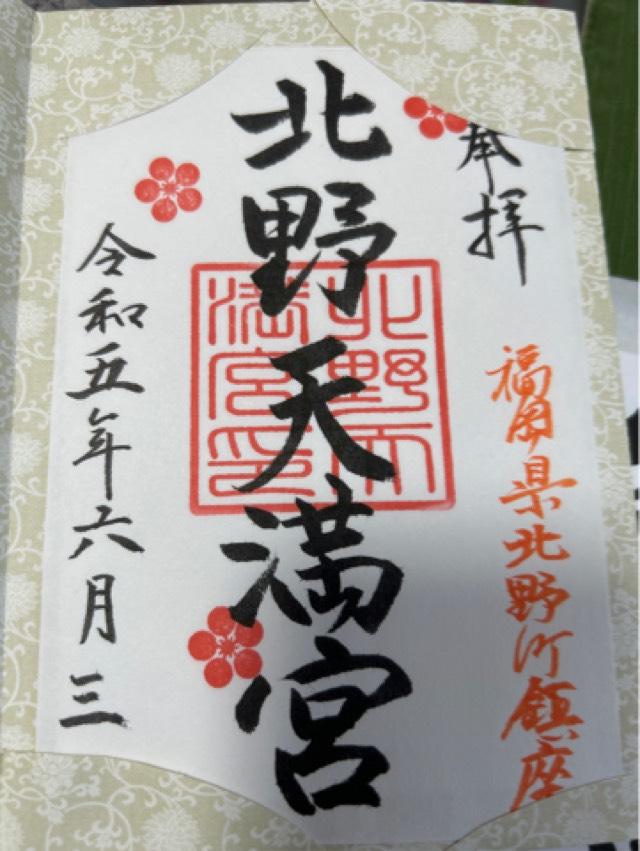 奉拝
福岡県北野町鎮座
北野天満宮
北野天
満宮印
令和五年六月三